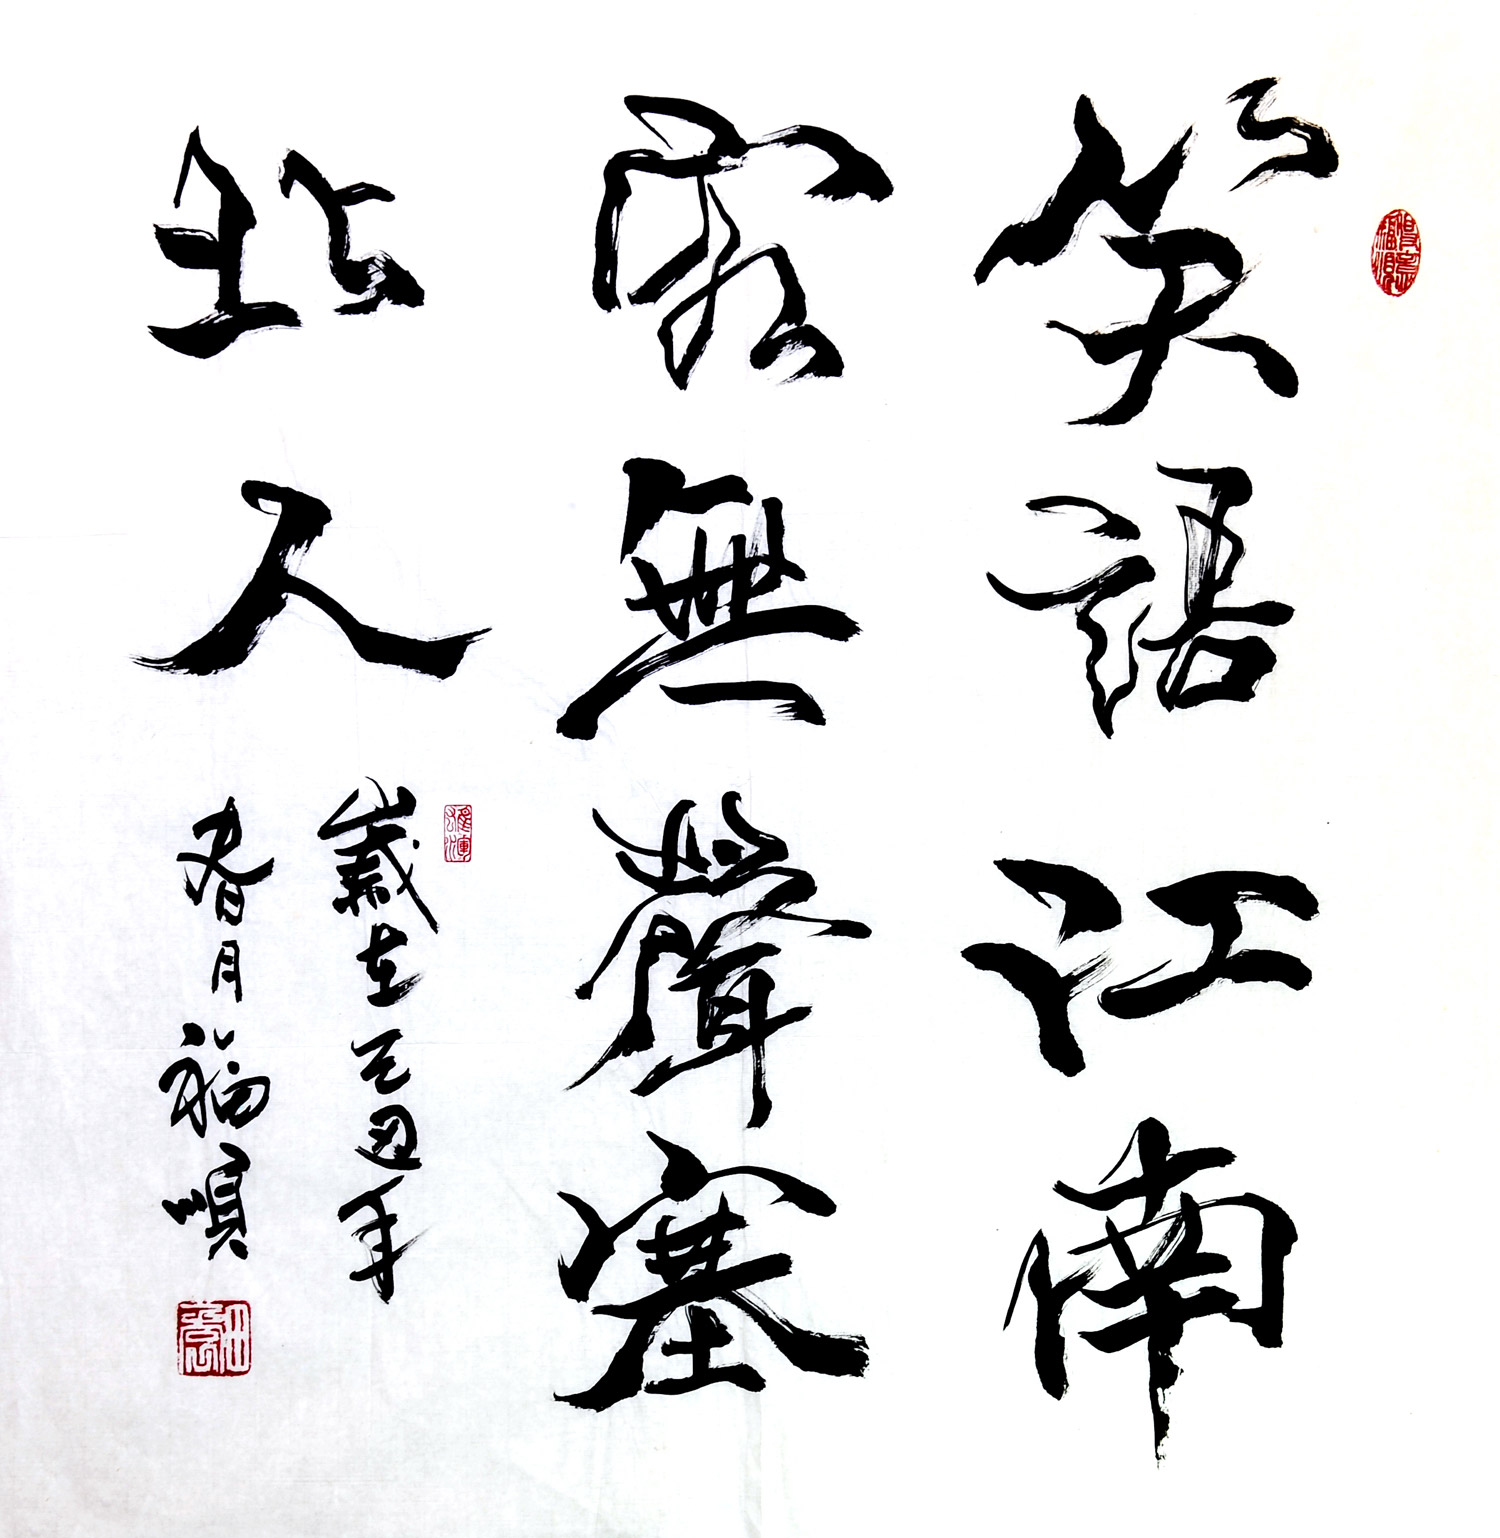 笑語江南
客無聲塞
北人
歲在乙丑年
春月福順